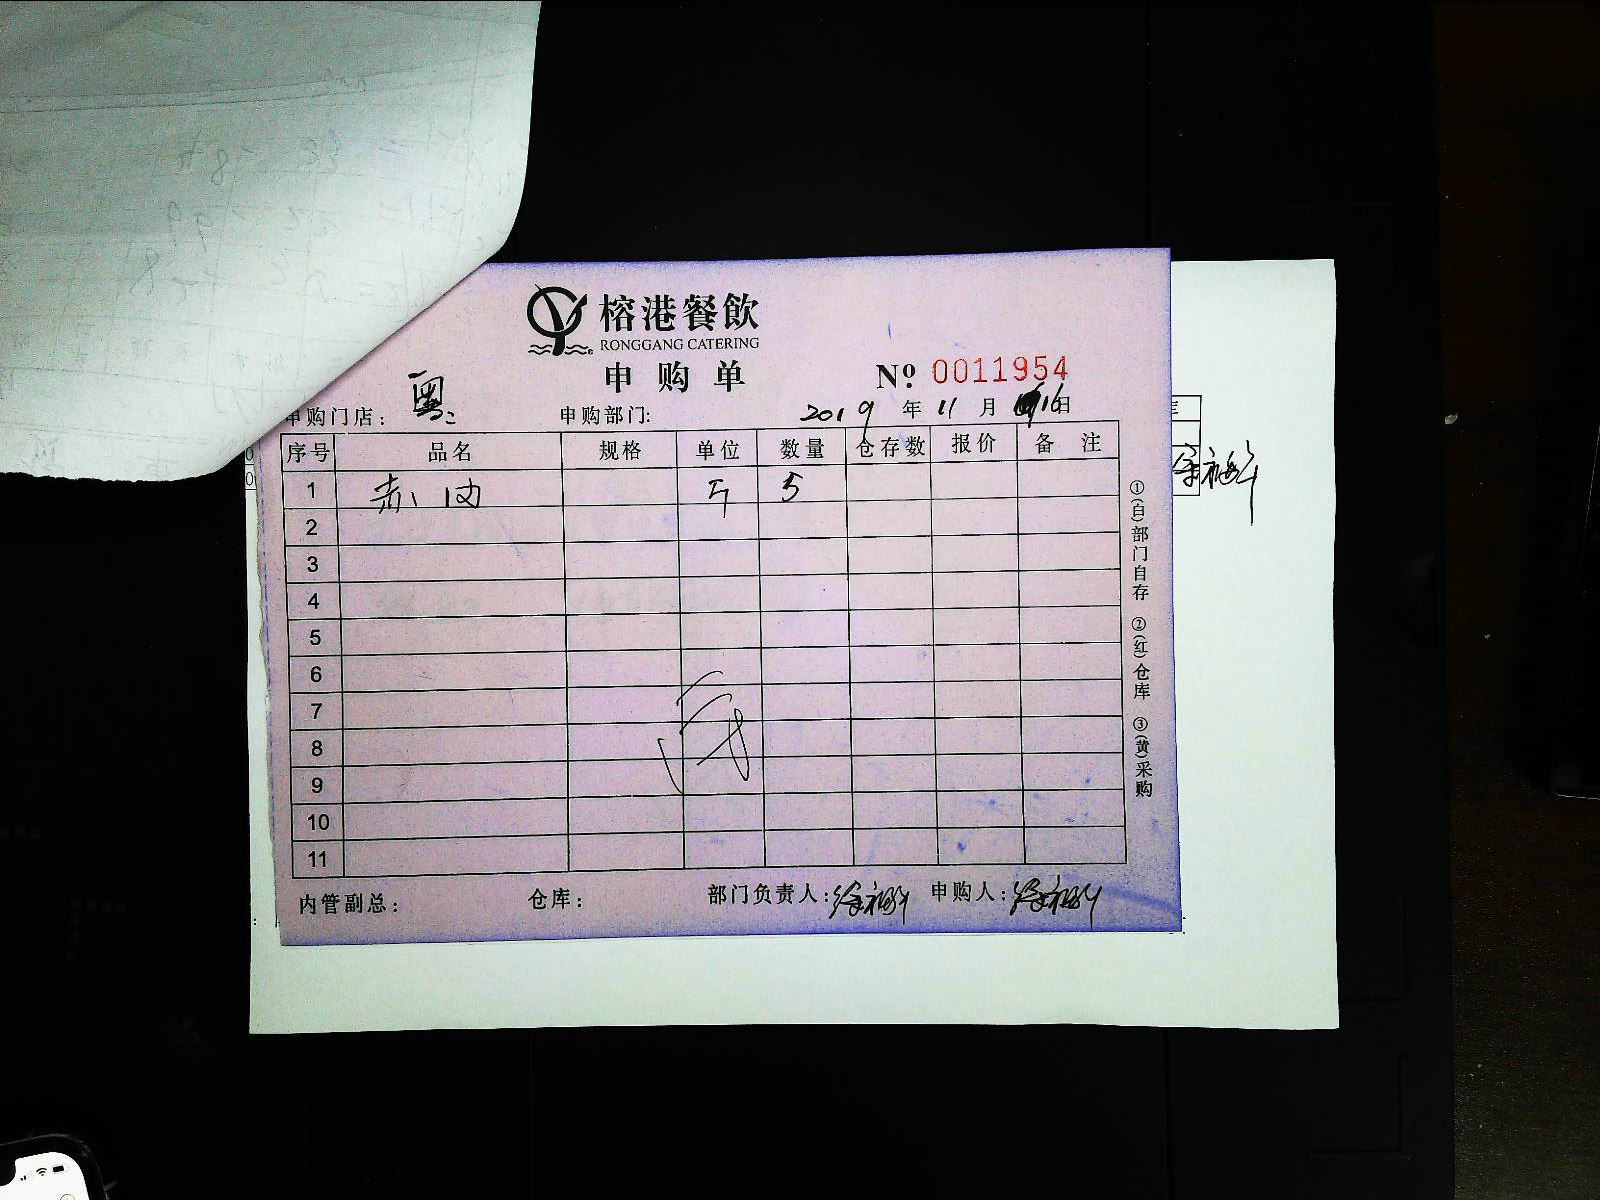 榕港餐飲
RONGGANG CATERING
申购单
№ 0011954
申购门店： 粤
申购部门： 2019 年 11 月 16 日
序号 品名 规格 单位 数量 仓存数 报价 备 注
1 斤 5
2
3
4
5
6
7
8
9
10
11
内管副总： 仓库： 部门负责人： 申购人：
①(白)部门自存 ②(红)仓库 ③(黄)采购